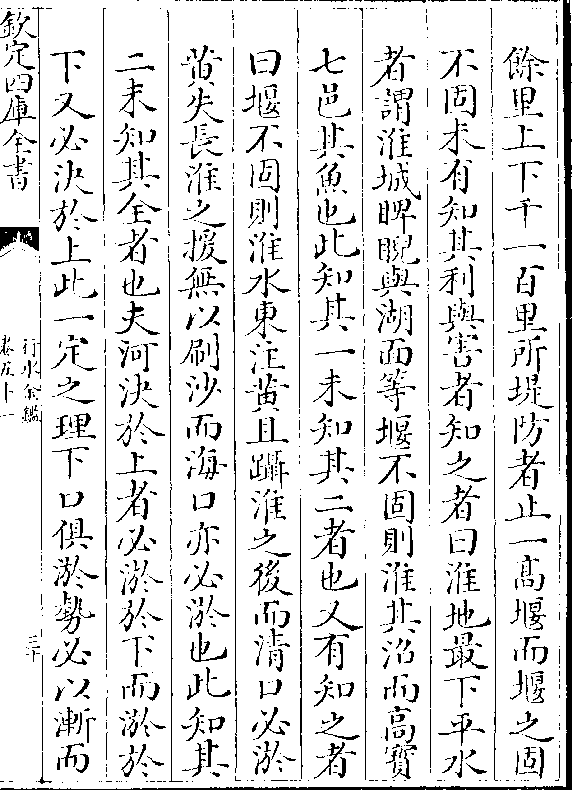 餘里上下千一百里所堤防者止一高堰而堰之固
不固未有知其利與害者知之者曰淮地最下平水
者謂淮城睥睨與湖面等堰不固則淮其沼而高寶
七邑其魚也此知其一未知其二者也又有知之者
曰堰不固則淮水東注黄且躡淮之後而清口必淤
黄失長淮之援無以刷沙而海口亦必淤也此知其
二未知其全者也夫河決於上者必淤於下而淤於
下又必決於上此一定之理下口俱淤勢必以漸而
欽定四庫全書
行水金鑑
卷五十一
三十